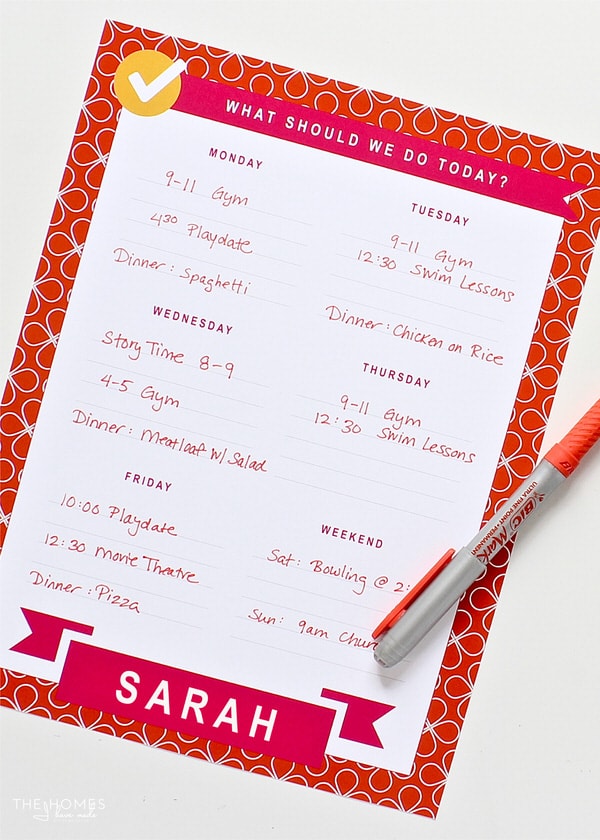 WHAT SHOULD WE DO TODAY?
MONDAY
9-11 Gym
4:30 Playdate
Dinner: Spaghetti
TUESDAY
9-11 Gym
12:30 Swim Lessons
Dinner: Chicken on Rice
WEDNESDAY
Story Time 8-9
4-5 Gym
Dinner: Meatloaf W/ Salad
THURSDAY
9-11 Gym
12:30 Swim Lessons
FRIDAY
10:00 Playdate
12:30 Movie Theatre
Dinner: Pizza
WEEKEND
Sat: Bowling @ 2:
Sun: 9am Chur
SARAH
BIC Mark
ULTRA FINE POINT-PERMANENT
THE HOMES
I have made